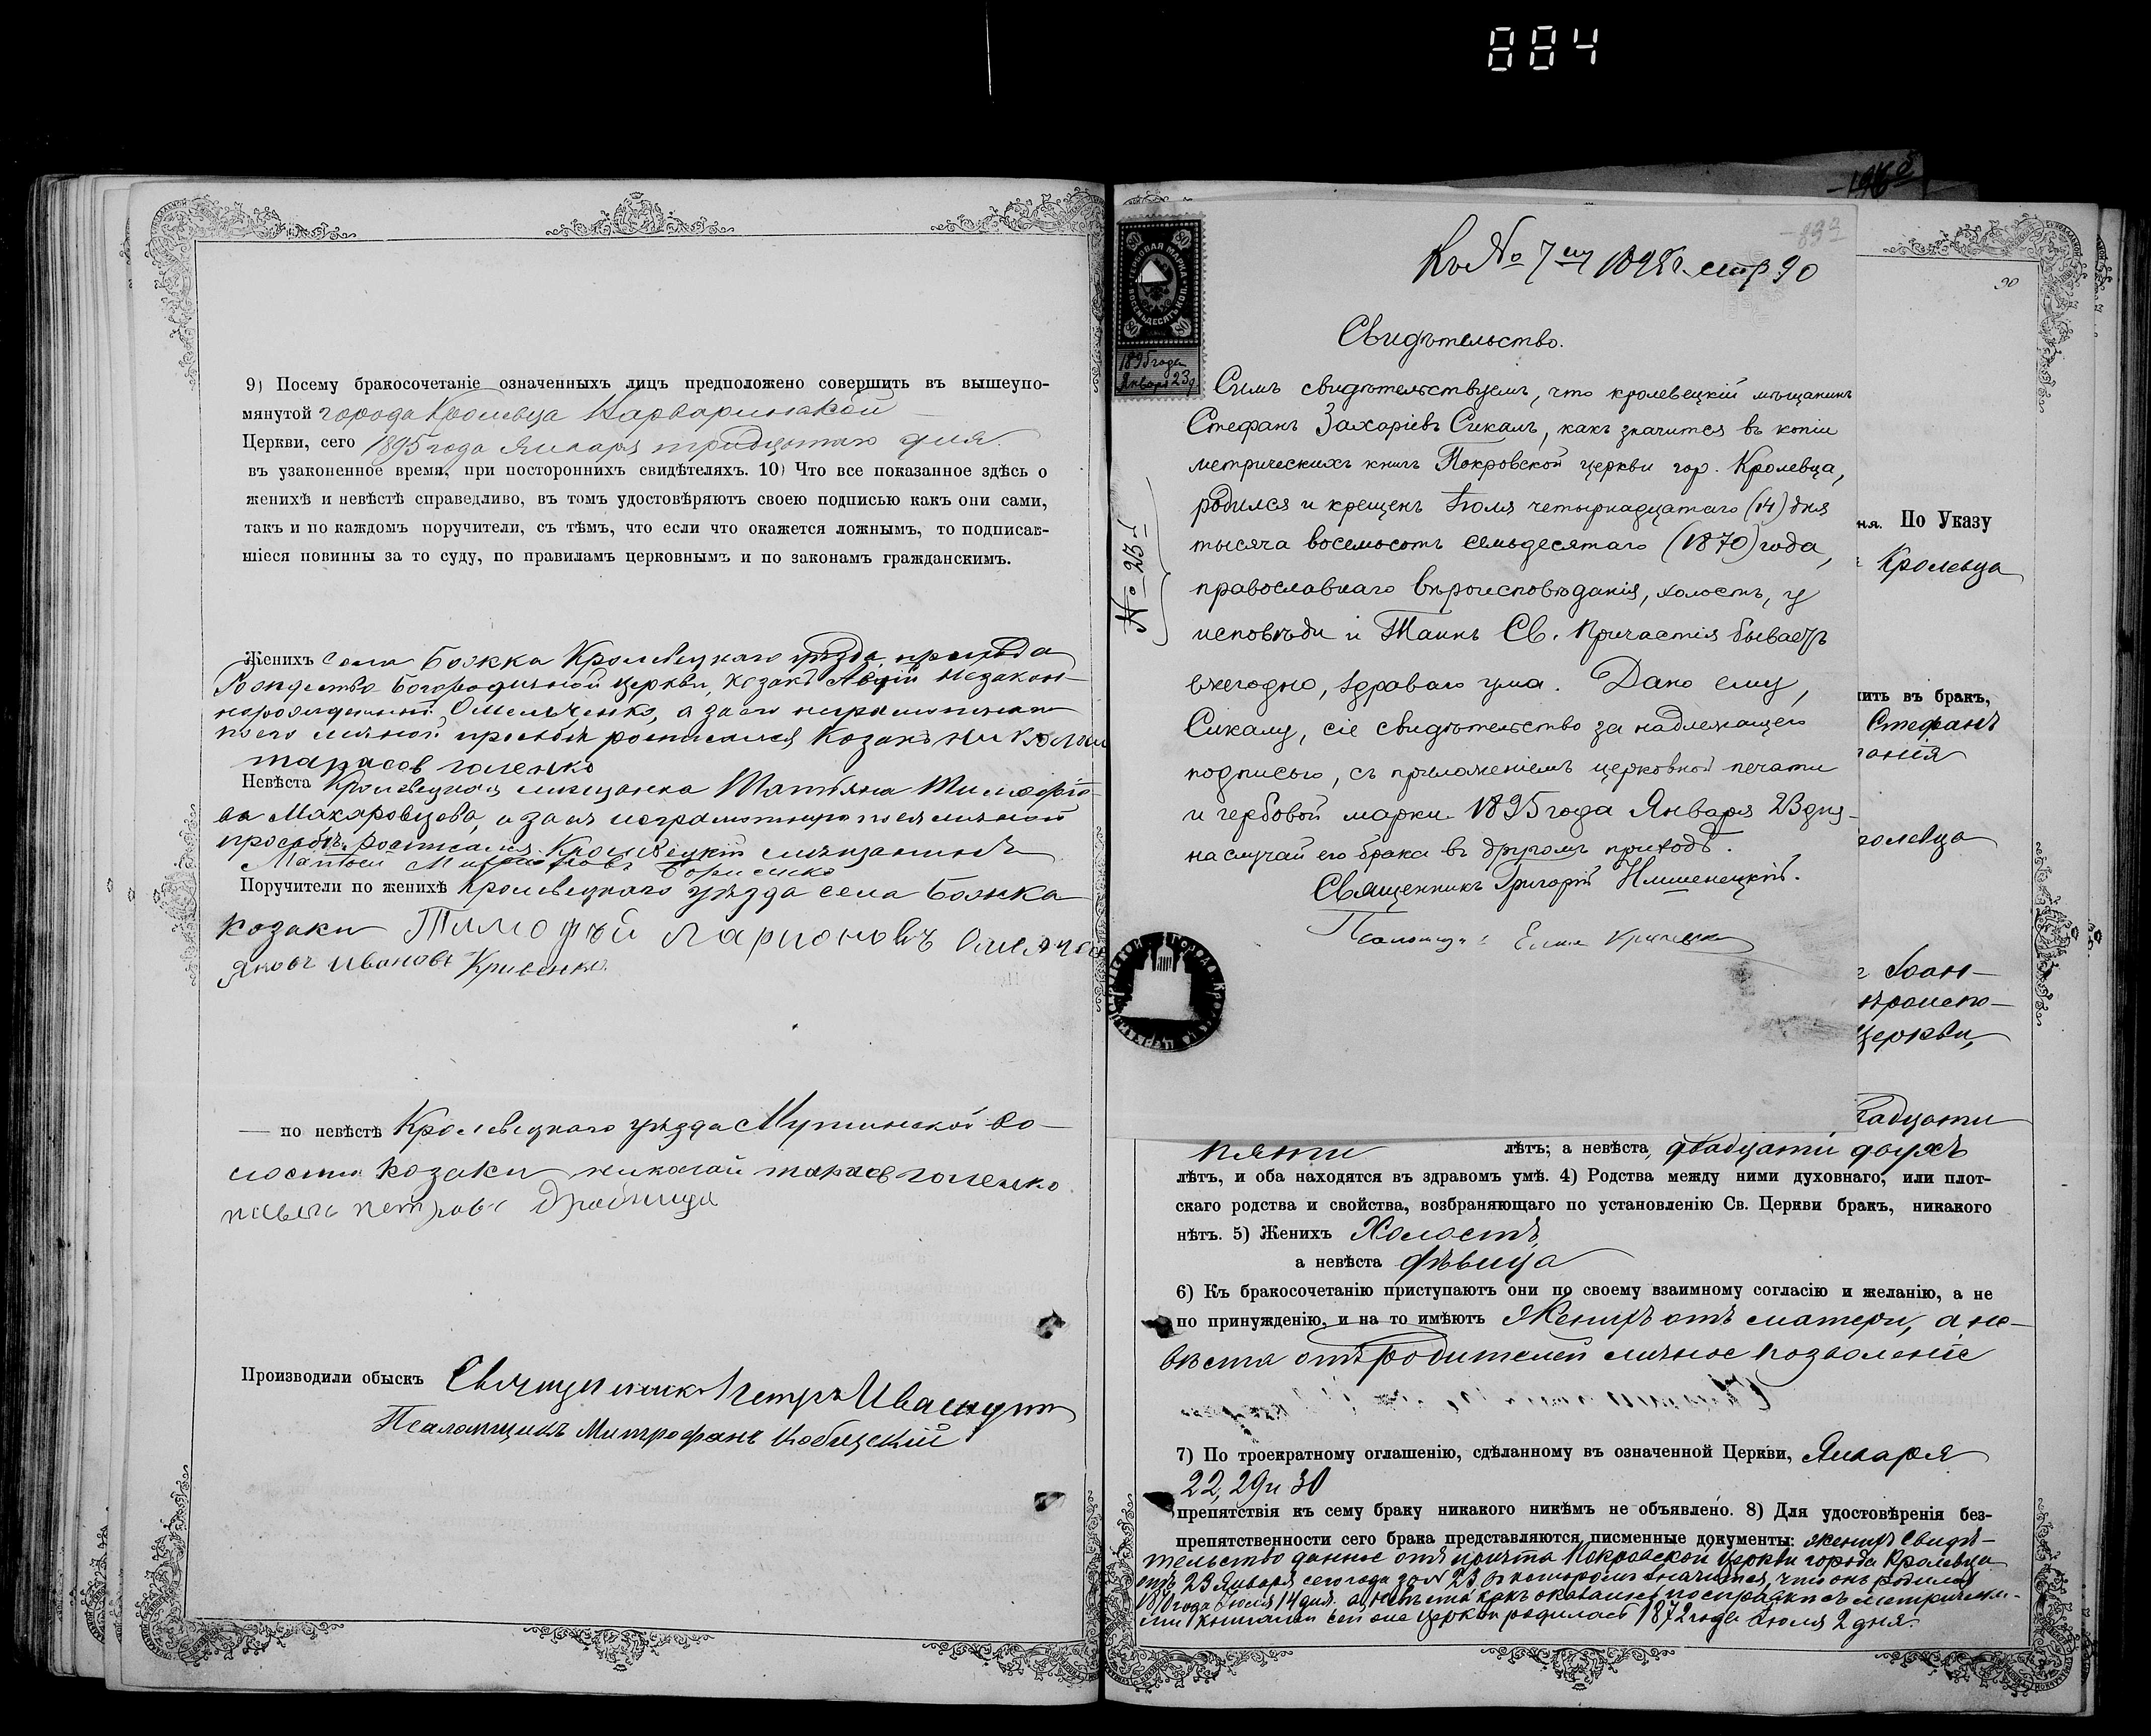 884
9) Посему бракосочетаніе означенныхъ лицъ предположено совершить въ вышеупо-
мянутой города Кролевца Варваринской
Церкви, сего 1895 года Января тридцатаго дня
въ узаконенное время, при постороннихъ свидѣтеляхъ. 10) Что все показанное здѣсь о
женихѣ и невѣстѣ справедливо, въ томъ удостовѣряютъ своею подписью какъ они сами,
такъ и по каждомъ поручители, съ тѣмъ, что если что окажется ложнымъ, то подписав-
шіеся повинны за то суду, по правиламъ церковнымъ и по законамъ гражданскимъ.
Женихъ села Божка Кролевецкаго уѣзда, прихода
Рождество Богородичной церкви, козакъ незакон-
норожденный Омельченко, а за его неграмотного
по его личной просьбѣ росписался Козакъ Николай
тарасов голенко
Невѣста Кролевецкая мѣщанка Татьяна Тимофѣе-
ва Макаровцева, а за ея неграмотную по ея личной
просьбѣ росписался Кролевецкій мѣщанинъ
Матвей Борисенко
Поручители по женихѣ Кролевецкаго уѣзда села Божка
козаки Тимофей Ларионовъ
Яковъ Ивановъ Кривенко
— по невѣстѣ Кролевецкаго уѣзда Мутинской во-
лости козаки николай тарасов голенко
павелъ петровъ Дробница
Производили обыскъ Священникъ Петръ
Псаломщикъ Митрофанъ Кобицскій
Къ № 7му 1895г. стр 90
80 80
ГЕРБОВАЯ МАРКА
ВОСЕМЬДЕСЯТЪ КОП.
80 80
1895 года
Января 23 д
№ 23-й
Свидѣтельство.
Симъ свидѣтельствуемъ, что кролевецкій мѣщанинъ
Стефанъ Захаріевъ Сикалъ, какъ значится въ копіи
метрическихъ книгъ Покровской церкви гор. Кролевца,
родился и крещенъ Іюля четырнадцатаго (14) дня
тысяча восемьсотъ семьдесятаго (1870) года,
православнаго вѣроисповѣданія, холостъ, у
исповѣди и Таинъ Св. Причастія бываетъ
ежегодно, здраваго ума. Дано ему,
Сикалу, сіе свидѣтельство за надлежащею
подписью, съ приложеніемъ церковной печати
и гербовой марки 1895 года Января 23 дня
на случай его брака въ другомъ приходѣ.
Священникъ Григорій
Псаломщ.
90
ня. По Указу
Кролевца
ить въ бракъ,
Стефанъ
анія
ролевца
Іоан-
вѣроиспо-
церкви,
адцати
пяти лѣтъ; а невѣста двадцати двухъ
лѣтъ, и оба находятся въ здравомъ умѣ. 4) Родства между ними духовнаго, или плот-
скаго родства и свойства, возбраняющаго по установленію Св. Церкви бракъ, никакого
нѣтъ. 5) Женихъ Холостъ,
а невѣста дѣвица
6) Къ бракосочетанію приступаютъ они по своему взаимному согласію и желанію, а не
по принужденію, и на то имѣютъ Женихъ отъ матери, а не-
вѣста отъ родителей личное позволеніе
7) По троекратному оглашенію, сдѣланному въ означенной Церкви, Января
22, 29 и 30
препятствія къ сему браку никакого никѣмъ не объявлено. 8) Для удостовѣренія без-
препятственности сего брака представляются писменные документы: женихъ Свидѣ-
тельство данное отъ причта Покровской церкви города Кролевца
отъ 23 Января сего года за № 23, въ которомъ значится, что онъ родился
1870 года Іюля 14 дня, а невѣста какъ оказалось по справкѣ съ метрически-
ми книгами сей же церкви родилась 1872 года Іюля 2 дня.